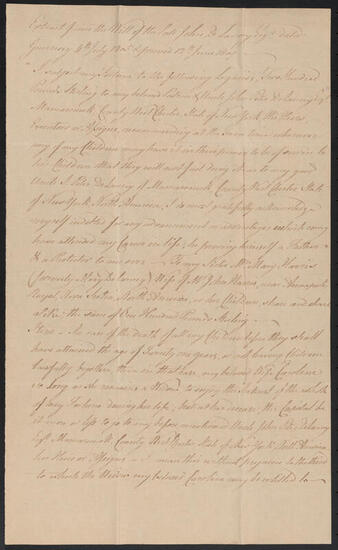 Extract from the Will of the late John De Lancey Esqr. dated
Guernsey 4th July &
proved 12th June
I subject my Fortune to the following Legacies, Two Hundred
Pounds Sterling to my beloved Uncle John Peter DeLancey Esqr.
Mamaroneck County West Chester State of New York His Heirs
Executors or Assigns, recommending at the same time whenever
any of my Children may have it in their power to be of service to
his Children that they will not fail doing it as to my good
Uncle J. Peter DeLancey of Mamaroneck County West Chester State
of New York North America, I most gratefully acknowledge
myself indebted for any advancement or advantages which may
have attended my Career in life, he proving himself a Father
& a Protector to me ever — To my Sister Mrs. Mary Harris
(formerly Mary De Lancey) Wife of Mr. John Harris, near Annapolis
Royal Nova Scotia, North America, or her Children, share and share
alike the sum of One Hundred Pounds Sterling —
Item — In case of the death of all my Children before they shall
have attained the age of Twenty one years, or not having Children
lawfully begotten, then in that case, my beloved Wife Caroline
so long as she remains a Widow to enjoy the Interest of the whole
of my Fortune during her life, but at her decease the Capital be
it more or less to go to my before mentioned Uncle John Pr. DeLancey
Esqr. Mamaroneck County West Chester State of New York North America
his Heirs or Assigns — I mean this without prejudice to the
to which the Widow my beloved Caroline may be entitled to —